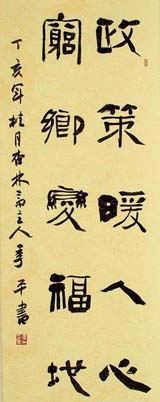 政策暖人心
窮鄉變福地
丁亥年桂月杏林齋主人季平書